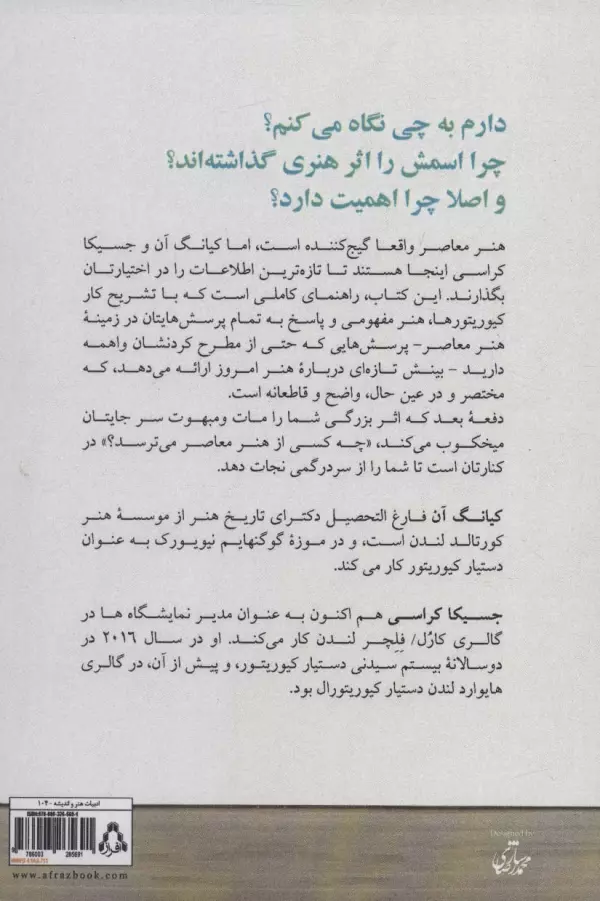 دارم به چی نگاه می کنم؟
چرا اسمش را اثر هنری گذاشته‌اند؟
و اصلا چرا اهمیت دارد؟
هنر معاصر واقعا گیج‌کننده است، اما کیانگ آن و جسیکا
کراسی اینجا هستند تا تازه‌ترین اطلاعات را در اختیارتان
بگذارند. این کتاب، راهنمای کاملی است که با تشریح کار
کیوریتورها، هنر مفهومی و پاسخ به تمام پرسش‌هایتان در زمینهٔ
هنر معاصر– پرسش‌هایی که حتی از مطرح کردنشان واهمه
دارید – بینش تازه‌ای دربارهٔ هنر امروز ارائه می‌دهد، که
مختصر و در عین حال، واضح و قاطعانه است.
دفعهٔ بعد که اثر بزرگی شما را مات ومبهوت سر جایتان
میخکوب می‌کند، «چه کسی از هنر معاصر می‌ترسد؟» در
کنارتان است تا شما را از سردرگمی نجات دهد.
کیانگ آن فارغ التحصیل دکترای تاریخ هنر از موسسهٔ هنر
کورتالد لندن است، و در موزهٔ گوگنهایم نیویورک به عنوان
دستیار کیوریتور کار می کند.
جسیکا کراسی هم اکنون به عنوان مدیر نمایشگاه ها در
گالری کارُل/ فلِچر لندن کار می‌کند. او در سال ۲۰۱۶ در
دوسالانهٔ بیستم سیدنی دستیار کیوریتور، و پیش از آن، در گالری
هایوارد لندن دستیار کیوریتورال بود.
ادبیات هنر و اندیشه ۱۰۴۰
افراز
www.afrazbook.com
Designed by